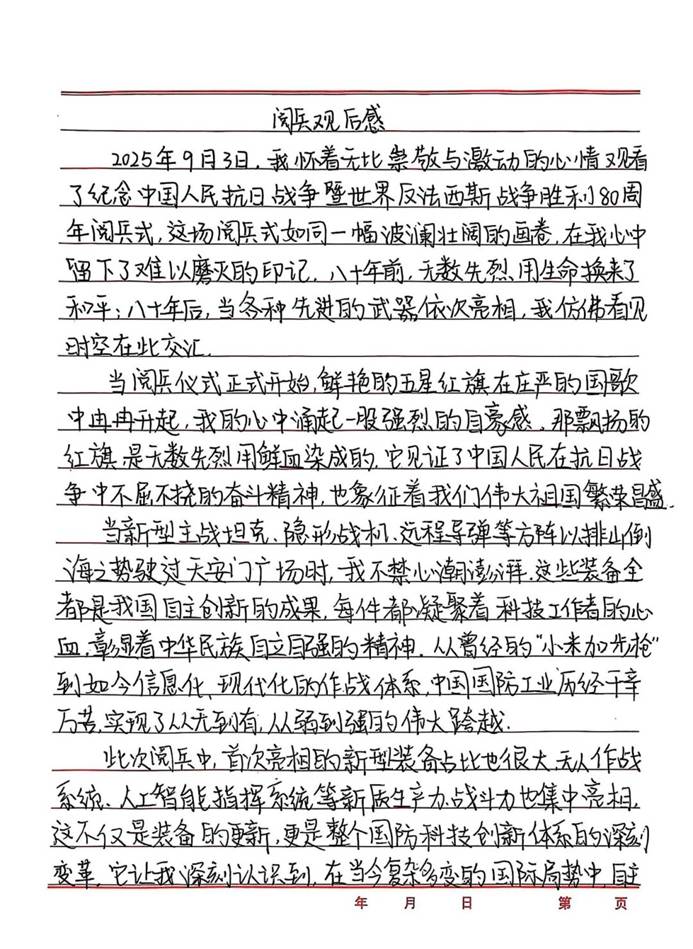 阅兵观后感
2025年9月3日，我怀着无比崇敬与激动的心情观看
了纪念中国人民抗日战争暨世界反法西斯战争胜利80周
年阅兵式，这场阅兵式如同一幅波澜壮阔的画卷，在我心中
留下了难以磨灭的印记．八十年前，无数先烈用生命换来了
和平；八十年后，当各种先进的武器依次亮相，我仿佛看见
时空在此交汇．
当阅兵仪式正式开始，鲜艳的五星红旗在庄严的国歌
中冉冉升起，我的心中涌起一股强烈的自豪感．那飘扬的
红旗，是无数先烈用鲜血染成的，它见证了中国人民在抗日战
争中不屈不挠的奋斗精神，也象征着我们伟大祖国繁荣昌盛．
当新型主战坦克、隐形战机、远程导弹等方阵以排山倒
海之势驶过天安门广场时，我不禁心潮澎湃．这些装备全
都是我国自主创新的成果，每件都凝聚着科技工作者的心
血，彰显着中华民族自立自强的精神．从曾经的“小米加步枪”
到如今信息化、现代化的作战体系，中国国防工业历经千辛
万苦，实现了从无到有，从弱到强的伟大跨越．
此次阅兵中，首次亮相的新型装备占比也很大，无人作战
系统、人工智能指挥系统等新质生产力、战斗力也集中亮相，
这不仅是装备的更新，更是整个国防科技创新体系的深刻
变革，它让我深刻认识到，在当今复杂多变的国际局势中，自主
年 月 日 第 页